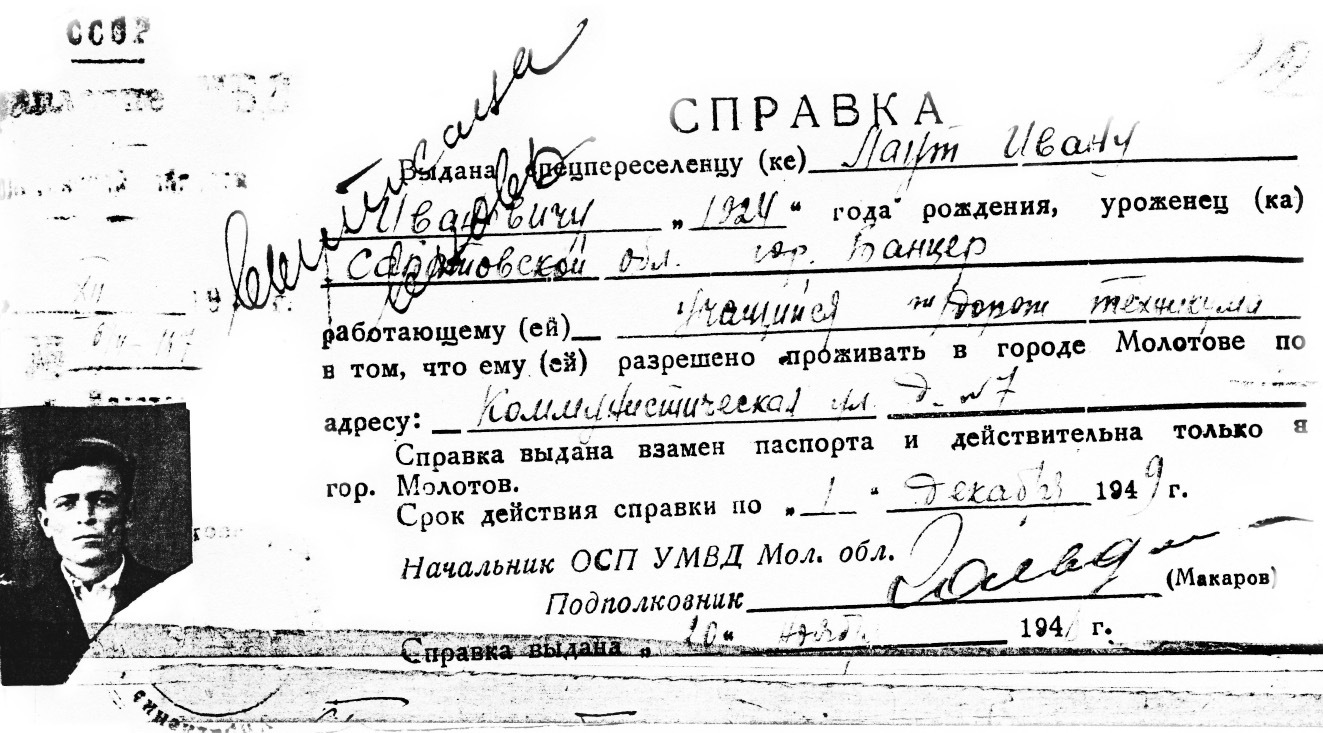 СССР
СПРАВКА
Выдана спецпереселенцу (ке) Лаут Ивану
Ивановичу „1924“ года рождения, уроженец (ка)
Саратовской обл. гор. Банцер
работающему (ей) учащийся ж/дорож техникума
в том, что ему (ей) разрешено проживать в городе Молотове по
адресу: Коммунистическая ул. д. №7
Справка выдана взамен паспорта и действительна только в
гор. Молотов.
Срок действия справки по „1“ декабря 1949 г.
Начальник ОСП УМВД Мол. обл.
Подполковник (Макаров)
Справка выдана „20“ ноября 194 г.